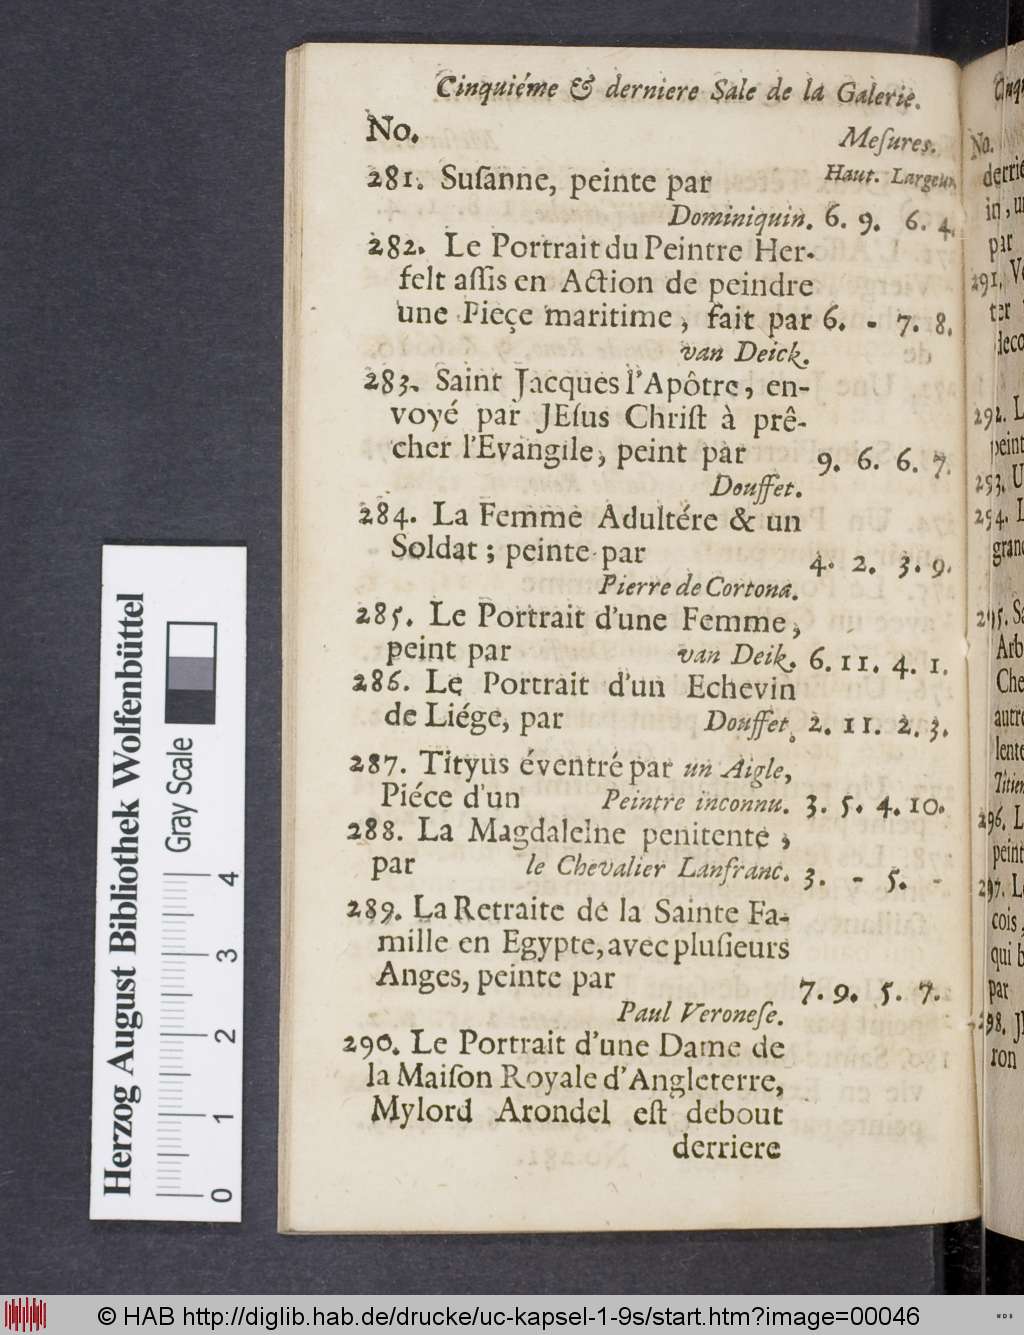 Cinquiéme & derniere Sale de la Galerie.
No.
Meſures.
Haut. Largeur.
281. Suſanne, peinte par
Dominiquin. 6. 9. 6. 4.
282. Le Portrait du Peintre Her-
felt aſſis en Action de peindre
une Pieçe maritime, fait par 6. - 7. 8.
van Deick.
283. Saint Jacques l'Apôtre, en-
voyé par JEſus Chriſt à prê-
cher l'Evangile, peint par 9. 6. 6. 7.
Douffet.
284. La Femme Adultére & un
Soldat; peinte par 4. 2. 3. 9.
Pierre de Cortona.
285. Le Portrait d'une Femme,
peint par van Deik. 6. 11. 4. 1.
286. Le Portrait d'un Echevin
de Liége, par Douffet. 2. 11. 2. 3.
287. Tityus éventré par un Aigle,
Piéce d'un Peintre inconnu. 3. 5. 4. 10.
288. La Magdaleine penitente,
par le Chevalier Lanfranc. 3. - 5. -
289. La Retraite de la Sainte Fa-
mille en Egypte, avec pluſieurs
Anges, peinte par 7. 9. 5. 7.
Paul Veroneſe.
290. Le Portrait d'une Dame de
la Maiſon Royale d'Angleterre,
Mylord Arondel eſt debout
derriere
No.
in, u
par
291. V
292. L
peint
293. U
294. L
295. S
Arb
Che
autre
lente
Titien
296. L
peint
297. L
cois,
qui b
par
298. J
ron
Herzog August Bibliothek Wolfenbüttel
Gray Scale
0 1 2 3 4
© HAB http://diglib.hab.de/drucke/uc-kapsel-1-9s/start.htm?image=00046